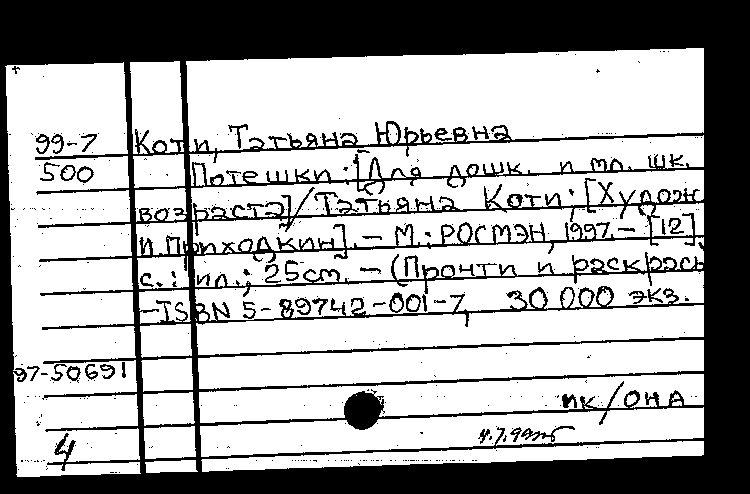 99-7 Коти, Татьяна Юрьевна
500 Потешки: [Для дошк. и мл. шк.
возраста] / Татьяна Коти; [Худож.
И. Приходкин]. – М.: РОСМЭН, 1997. – [12]
с.: ил.; 25см. – (Прочти и раскрась
– ISBN 5-89742-001-7, 30 000 экз.
97-50691
ПК/ОНА
4